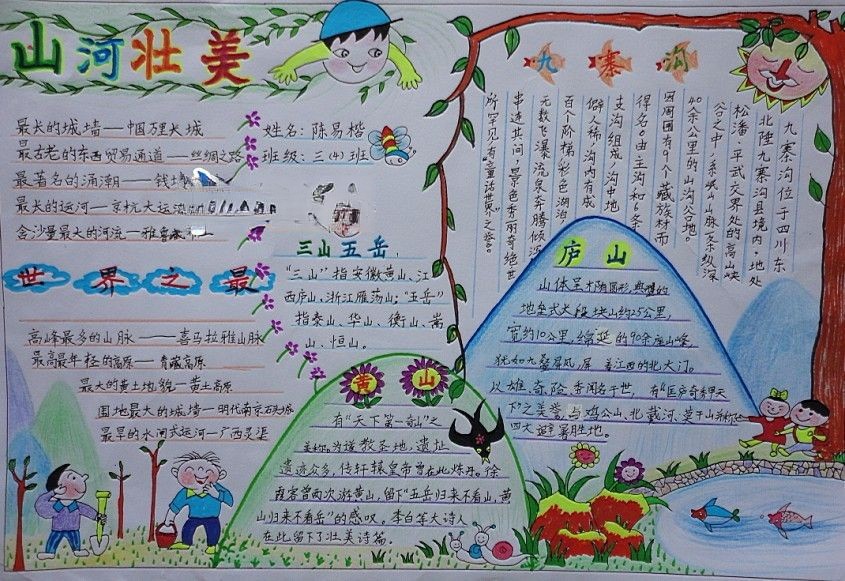 山河壮美
最长的城墙——中国万里长城
最古老的东西贸易通道——丝绸之路
最著名的涌潮——钱
最长的运河——京杭大运
含沙量最大的河流——雅鲁
姓名：陈易楷
班级：三（4）班
世界之最
高峰最多的山脉——喜马拉雅山脉
最高最年轻的高原——青藏高原
最大的黄土地貌——黄土高原
围地最大的城墙——明代南京石头城
最早的水闸式运河——广西灵渠
三山五岳，
“三山”指安徽黄山、江
西庐山、浙江雁荡山；“五岳”
指泰山、华山、衡山、嵩
山、恒山。
黄山
有“天下第一奇山”之
美称。为道教圣地，遗址
遗迹众多，传轩辕皇帝曾在此炼丹。徐
霞客曾两次游黄山，留下“五岳归来不看山，黄
山归来不看岳”的感叹。李白等大诗人
在此留下了壮美诗篇
九寨沟
九寨沟位于四川东
北陲九寨沟县境内。地处
松潘、平武交界处的高山峡
谷之中，系岷山山脉多条纵深
40余公里的山沟谷地。
因周围有9个藏族村而
得名。由主沟和6条
支沟组成，沟中地
僻人稀，沟内有成
百个阶梯彩色湖泊
无数飞瀑流泉奔腾倾泻
串连其间，景色秀丽奇绝世
所罕见，有“童话世界”之誉。
庐山
山体呈椭圆形，典型的
地垒式大段块山约25公里，
宽约10公里，绵延的90余座山峰，
犹如九叠屏风，屏着江西的北大门。
以雄、奇、险、秀闻名于世，有“匡庐奇秀甲天
下”之美誉，与鸡公山、北戴河、莫干山并称
四大避暑胜地。